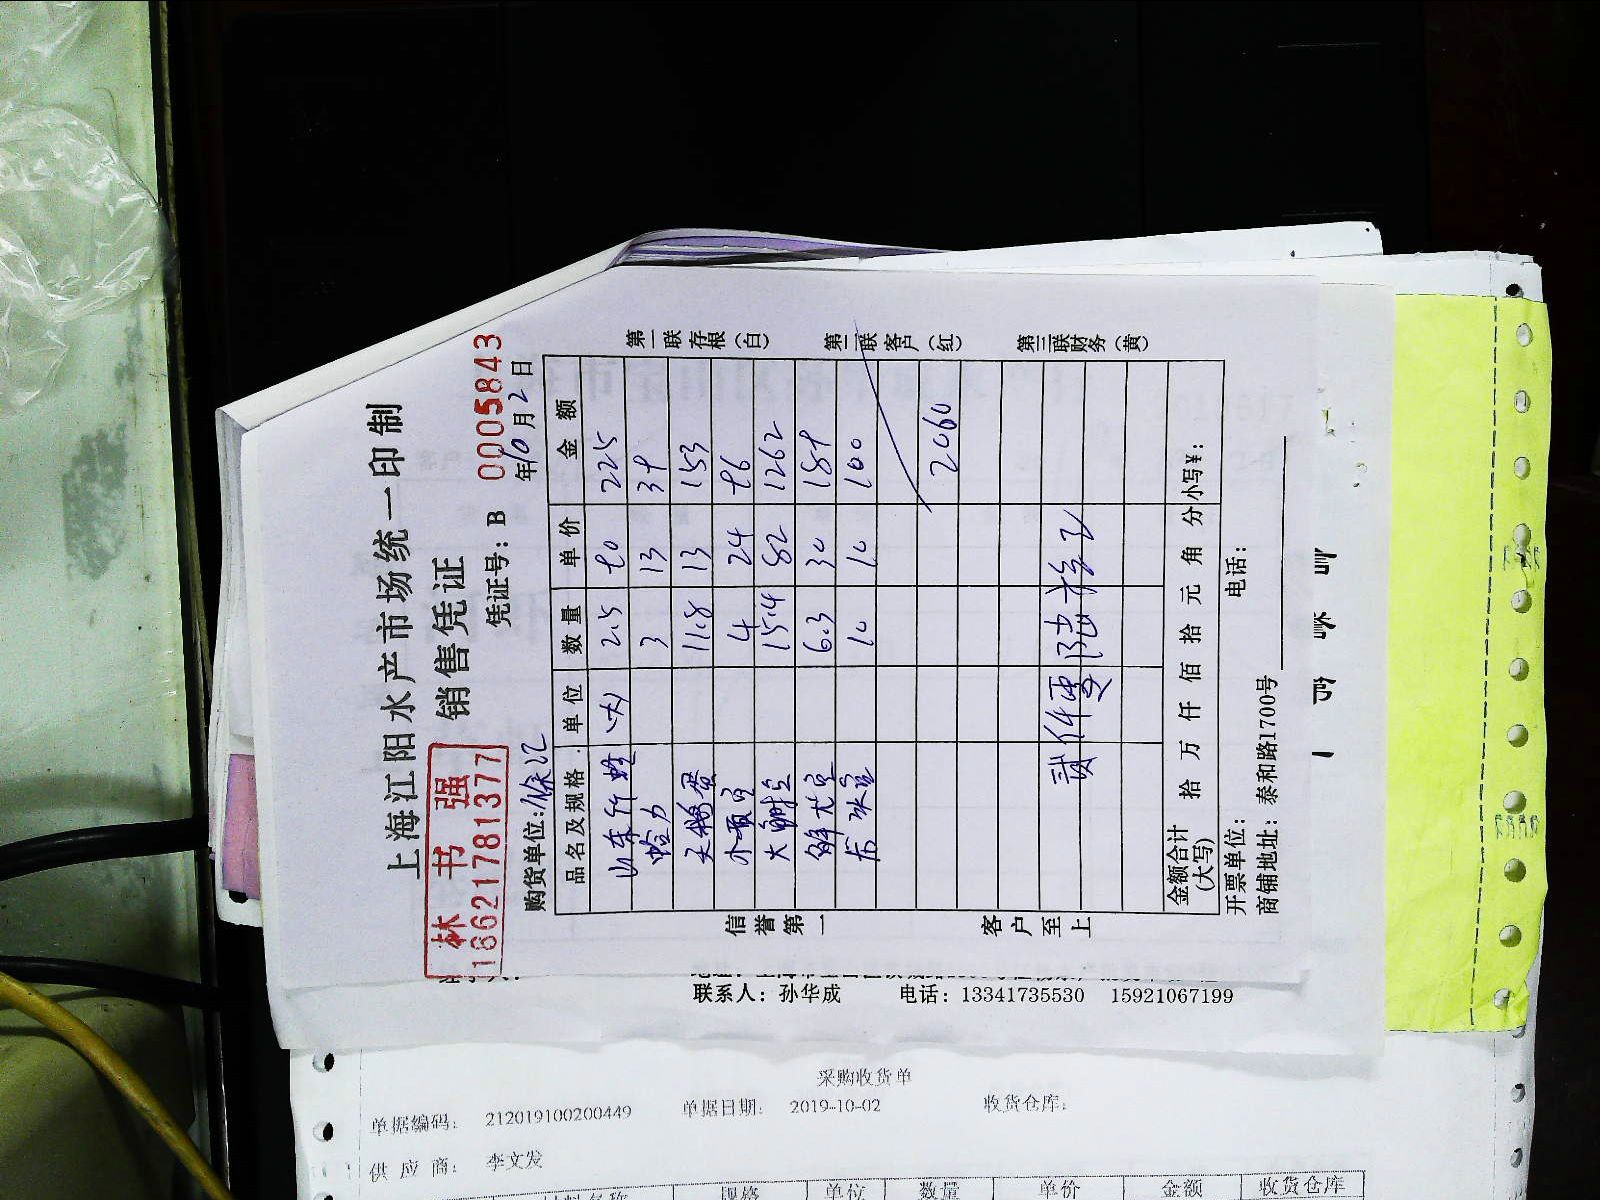 上海江阳水产市场统一印制
销售凭证
林书强
16621781377
凭证号：B 0005843
年10月2日
购货单位：徐汇
品名及规格 单位 数量 单价 金额
山东竹蛏 2.5 225
蛤力 3 13 39
天鹅蛋 11.8 13 153
4 24
大 15.4 82 1262
鲜尤鱼 6.3 30 189
冰 10 10 100
2060
贰仟零陆拾元
金额合计（大写） 拾 万 仟 佰 拾 元 角 分 小写¥：
开票单位： 电话：
商铺地址：泰和路1700号
信誉第一 客户至上
第一联存根（白） 第二联客户（红） 第三联财务（黄）
联系人：孙华成 电话：13341735530 15921067199
采购收货单
单据编码： 212019100200449 单据日期： 2019-10-02 收货仓库：
供应商： 李文发
材料名称 规格 单位 数量 单价 金额 收货仓库